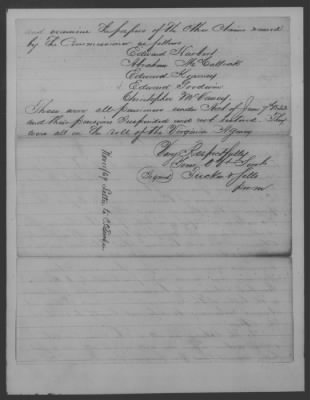 and examine the papers of the other claims named
by the Commissioner as follows
Edward Harbert
Abraham McCullock
Edward Kearney
Edward Goodwin
Christopher McVaney
These were all pensioners under Act of June 7th 1832
and their pensions suspended and not restored. They
were all on the roll of the Virginia Agency
Very Respectfully
Your Obt Servt
(Signed)
Nov 1/69 Letter to